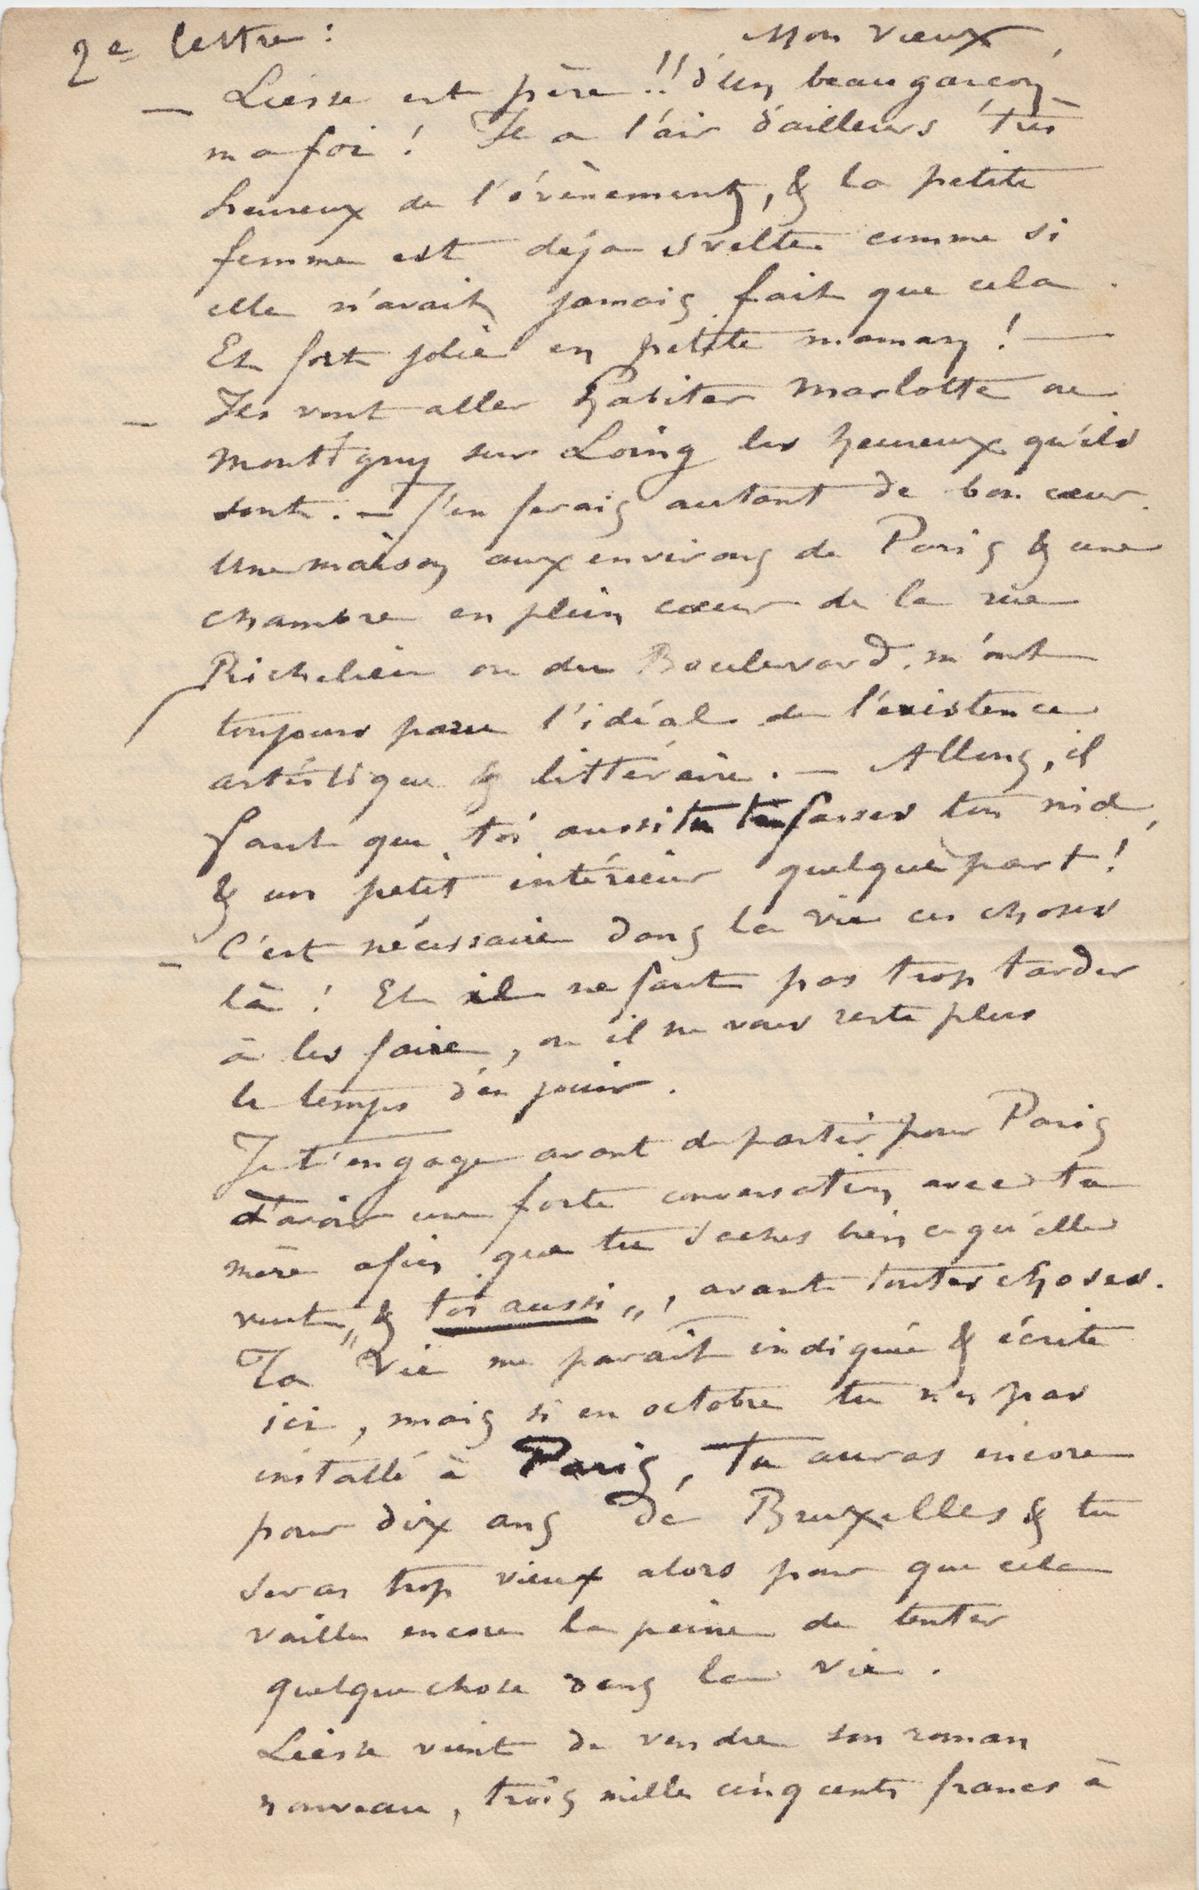 2e lettre :
Mon vieux,
— Liesse est père !! d'un beau garçon,
ma foi ! Il a l'air d'ailleurs très
heureux de l'évènement, & la petite
femme est déja svelte comme si
elle n'avait jamais fait que cela.
Et fort jolie en petite maman ! —
— Ils vont aller habiter Marlotte ou
Montigny sur Loing les heureux qu'ils
sont. — J'en ferais autant de bon cœur.
Une maison aux environs de Paris & une
chambre en plein cœur de la rue
Richelieu ou du Boulevard, m'ont
toujours paru l'idéal de l'existence
artistique & littéraire. — Allons, il
faut que toi aussi tu fasses ton nid,
& un petit intérieur quelque part !
— C'est nécessaire dans la vie ces choses
là ! Et il ne faut pas trop tarder
à les faire, ou il ne vous reste plus
le temps d'en jouir.
Je t'engage avant de partir pour Paris
d'avoir une forte conversation avec ta
mère afin que tu saches bien ce qu'elle
veut „ & toi aussi „, avant toutes choses.
Ta vie me parait indiquée & écrite
ici, mais si en octobre tu n'es pas
installé à Paris, tu auras encore
pour dix ans de Bruxelles & tu
seras trop vieux alors pour que cela
vaille encore la peine de tenter
quelque chose dans la vie.
Liesse vient de vendre son roman
nouveau, trois mille cinq cents francs à